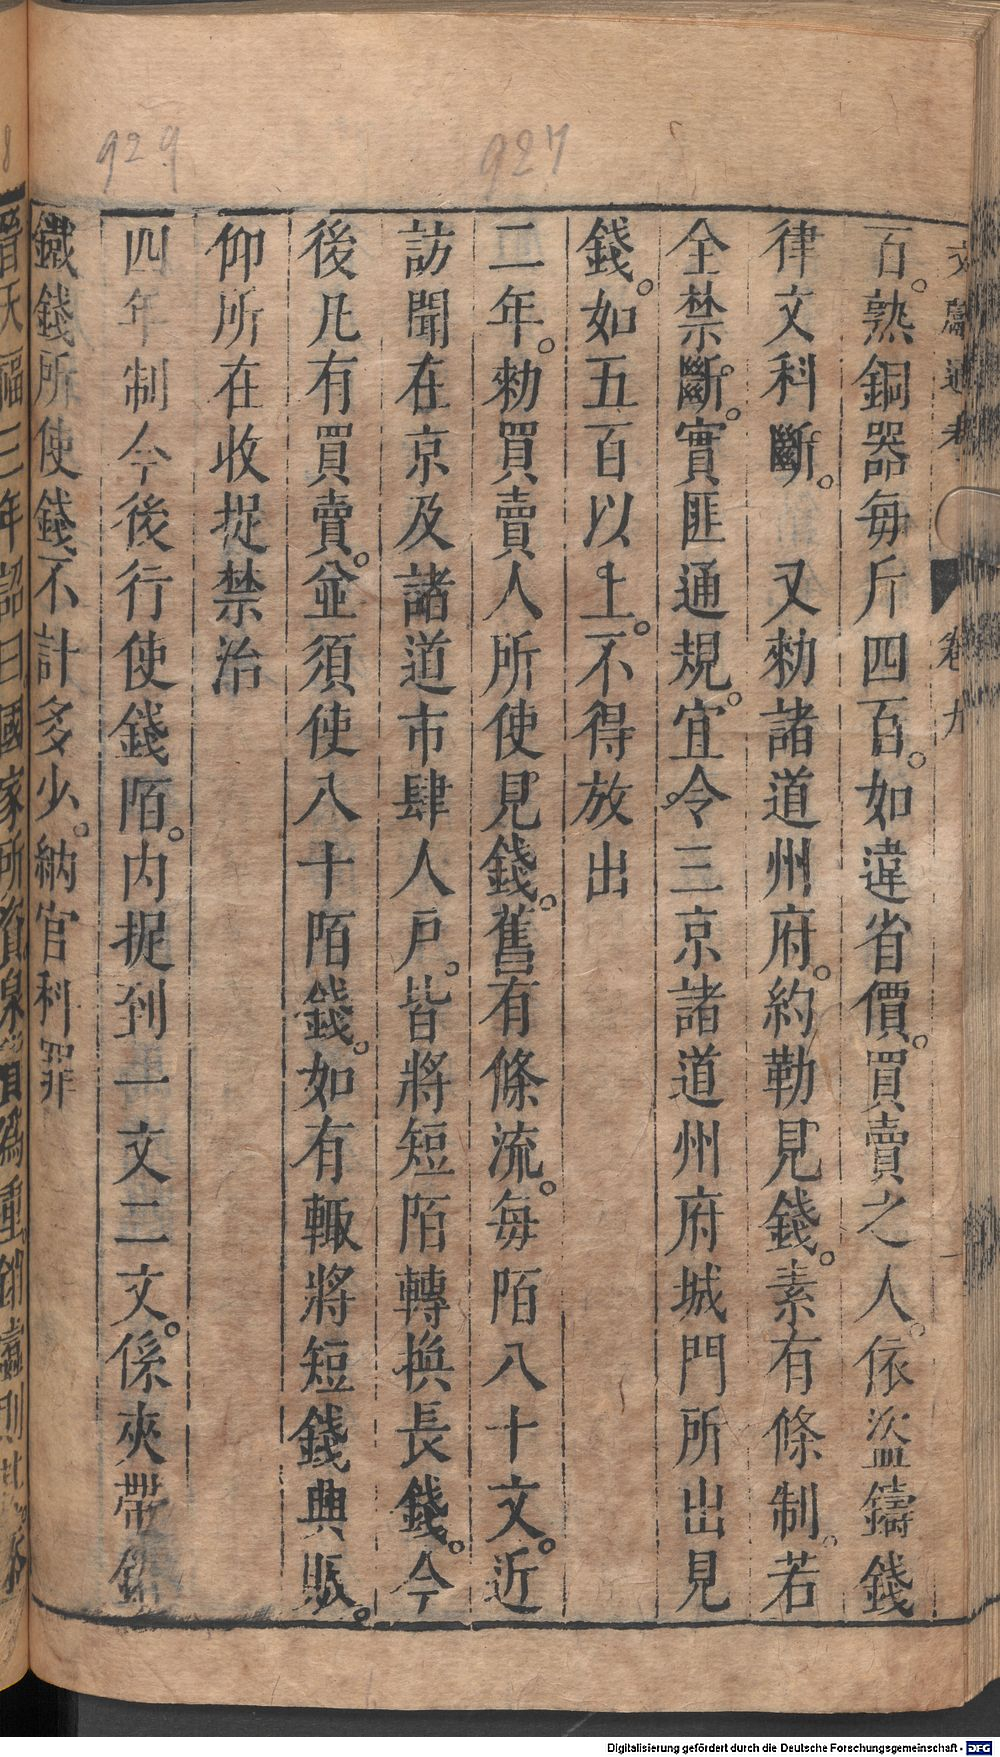 927
929
文獻通考 卷九
百。熟銅器每斤四百。如違省價。買賣之人。依盜鑄錢
律文科斷。 又勑諸道州府。約勒見錢。素有條制。若
全禁斷。實匪通規。宜令三京諸道州府城門所出見
錢。如五百以上。不得放出
二年。勑買賣人所使見錢。舊有條流。每陌八十文。近
訪聞在京及諸道市肆人戶。皆將短陌轉換長錢。今
後凡有買賣。並須使八十陌錢。如有輙將短錢興販。
仰所在收捉禁治
四年制今後行使錢陌。內捉到一文二文。係夾帶鉛
鐵錢所使錢不計多少。納官科罪
晋天福三年詔曰國家所資泉貨爲重銷蠹則
Digitalisierung gefördert durch die Deutsche Forschungsgemeinschaft - DFG